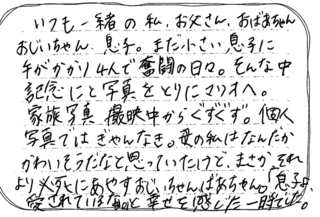 いつも一緒の私、お父さん、おばあちゃん
おじいちゃん、息子。まだ小さい息子に
手がかかり4人で奮闘の日々。そんな中
記念にと写真をとりにマリオへ。
家族写真撮影中からぐずぐず。個人
写真ではぎゃんなき。母の私はなんだか
かわいそうだなと思っていたけど、まさか、それ
より必死にあやすおじいちゃんばあちゃん。「息子よ、
愛されているなぁ」と幸せを感じた一時でした。